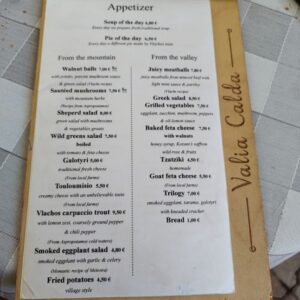 Appetizer
Soup of the day 6,00 €
Every day we prepare fresh traditional soup
Pie of the day 6,50 €
Every day a different pie made by
From the mountain
Walnut balls 7,00 €
mushroom sauce
& green salad
Sautéed mushrooms 7,50 €
with mountain herbs
(Recipe from Aspropotamos)
Sheperd salad 8,00 €
green salad with mushrooms
& vegetables
Wild greens salad 7,00 €
boiled
with tomato & feta cheese
Galotyri 5,00 €
traditional fresh cheese
(From local farm)
Touloumisio 5,00 €
creamy cheese with an unbelievable taste
(From local farm)
Vlachos carpaccio trout 9,50 €
with lemon zest, coarsely ground pepper
& chili pepper
(From Aspropotamos cold waters)
Smoked eggplant salad 4,80 €
smoked eggplant with garlic & celery
(Monastic recipe of Meteora)
Fried potatoes 4,50 €
village style
From the valley
Juicy meatballs 7,80 €
juicy meatballs from minced beef with
light sauce & parsley
Greek salad 8,00 €
Grilled vegetables 7,80 €
eggplant, zucchini, mushroom, peppers
& oil lemon sauce
Baked feta cheese 7,50 €
with walnuts
honey syrup, Kozani's saffron
wild rose & fruits
Tzatziki 4,50 €
homemade
Goat feta cheese 5,50 €
(From local farm)
Trilogy 7,00 €
smoked eggplant, tarama, galotyri
with kneaded cracker
Bread 1,00 €
Valia Calda